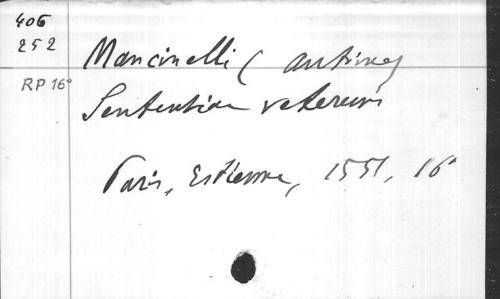 406
252
RP 16°
Mancinelli (Antoine)
Sententiae veterum
Paris, Estienne, 1551, 16°